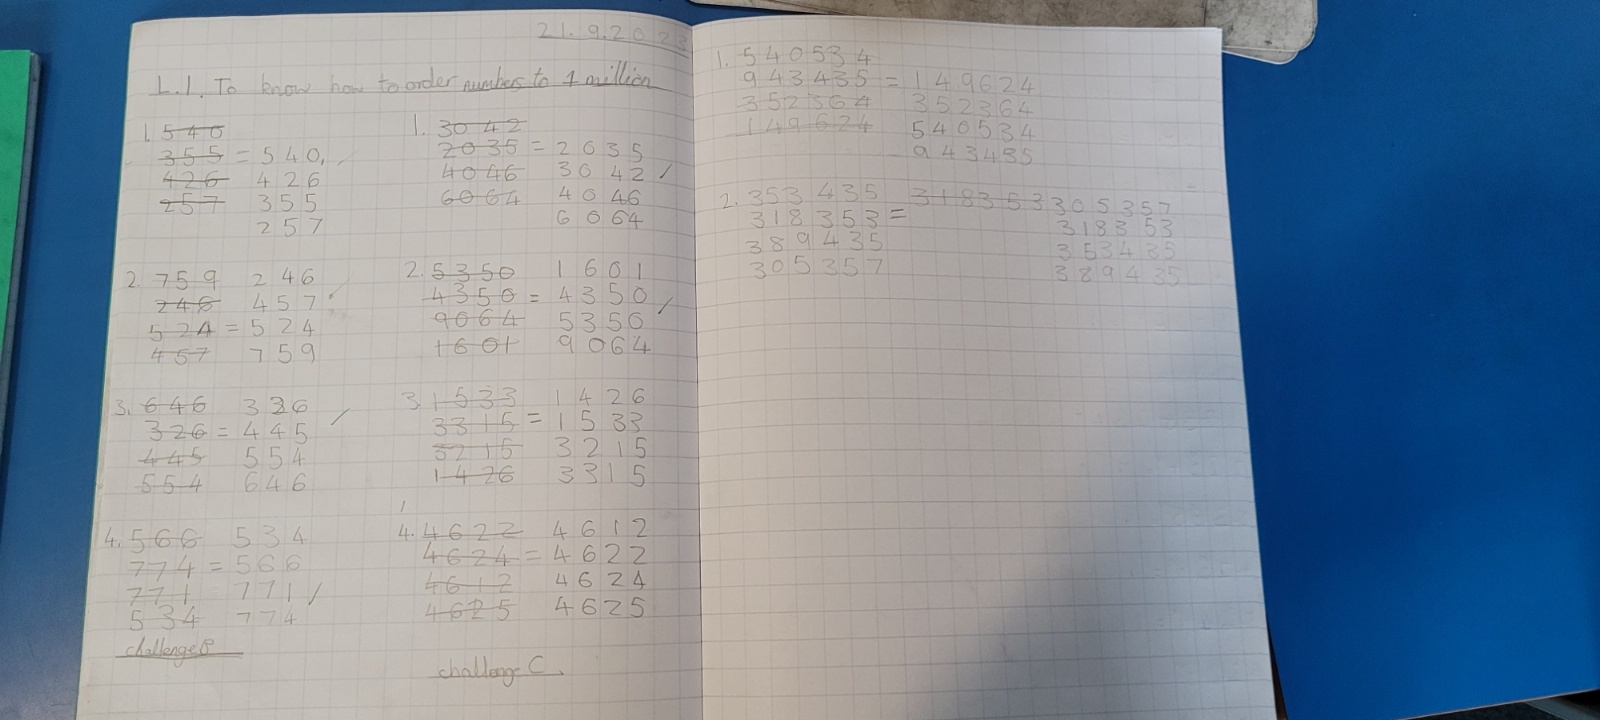 21.9.2023
L.I. To know how to order numbers to 1 million
1. 540
355 = 540,
426 426
257 355
257
2. 759 246
246 457
524 = 524
457 759
3. 646 326
326 = 445
445 554
554 646
4. 566 534
774 = 566
771 771
534 774
challenge B
1. 3042
2035 = 2035
4046 3042
6064 4046
6064
2. 5350 1601
4350 = 4350
9064 5350
1601 9064
3. 1533 1426
3315 = 1533
3215 3215
1426 3315
4. 4622 4612
4624 = 4622
4612 4624
4625 4625
challenge C.
1. 540534
943435 = 149624
352364 352364
149624 540534
943435
2. 353435 318353 305357
318353 = 318353
389435 353435
305357 389435